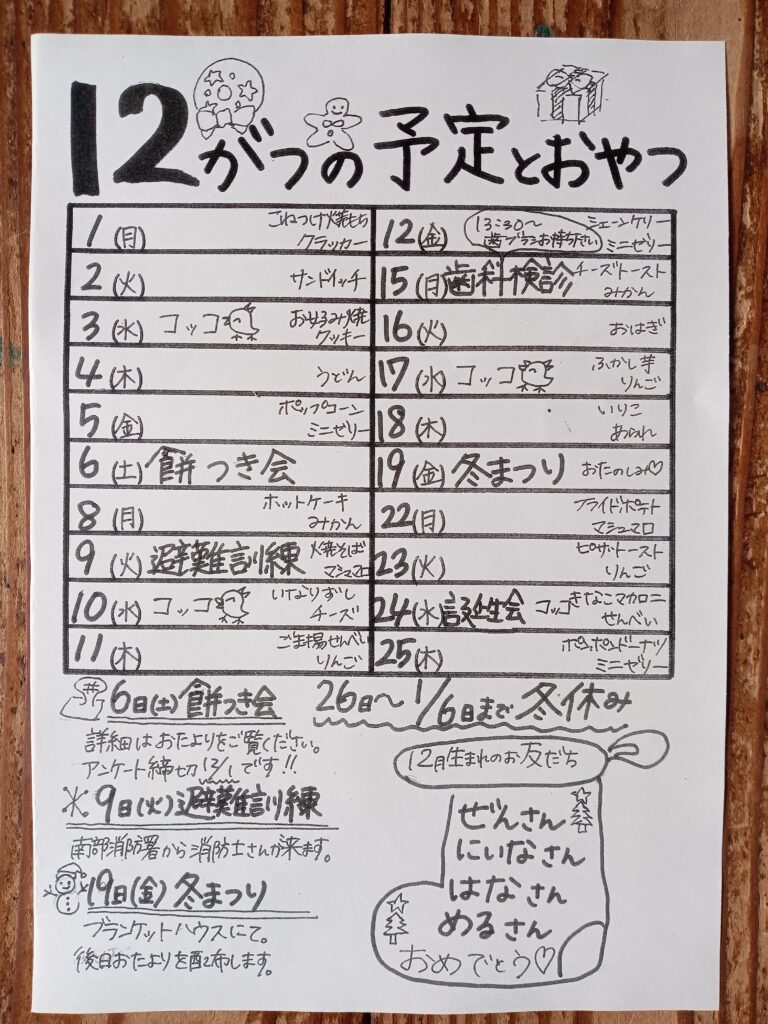 12がつの予定とおやつ
1(月) こねつけ焼もち
クラッカー
2(火) サンドイッチ
3(水) コッコ お好み焼
クッキー
4(木) うどん
5(金) ポップコーン
ミニゼリー
6(土) 餅つき会
8(月) ホットケーキ
みかん
9(火) 避難訓練 焼そば
マシュマロ
10(水) コッコ いなりずし
チーズ
11(木) ごま揚せんべい
りんご
12(金) 13:30〜
歯ブラシお持ち下さい
ミニゼリー
15(月) 歯科検診 チーズトースト
みかん
16(火) おはぎ
17(水) コッコ ふかし芋
りんご
18(木) いりこ
あられ
19(金) 冬まつり おたのしみ♡
22(月) フライドポテト
マシュマロ
23(火) ピザトースト
りんご
24(水) 誕生会 コッコ きなこマカロニ
せんべい
25(木) ポンポンドーナツ
ミニゼリー
6日(土) 餅つき会
詳細はおたよりをご覧ください。
アンケート締切12/1です!!
9日(火)避難訓練
南部消防署から消防士さんが来ます。
19日(金)冬まつり
ブランケットハウスにて。
後日おたよりを配布します。
26日〜1/6日まで冬休み
12月生まれのお友だち
ぜんさん
にいなさん
はなさん
めるさん
おめでとう♡